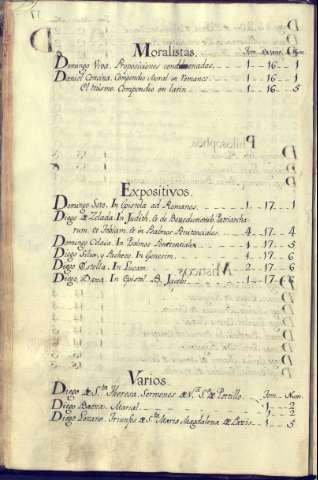 D
Moralistas. Tom. Estant. Num.
Domingo Viva. Proposiciones condenadas. 1 — 16 — 1
Daniel Concina. Compendio Moral en Romance. 1 — 16 — 1
El mismo. Compendio en latin. 1 — 16 — 5
Expositivos.
Domingo Soto. In Epistola ad Romanos. 1 — 17 — 1
Diego de Zelada. In Judith. & de Benedictionib Patriarcha
rum. & Tobiam. & in Psalmos Penitenciales. 4 — 17 — 4
Domingo In Psalmos Penitenciales. 1 — 17 — 5
Diego In Genesim. 1 — 17 — 6
Diego Estella. In Lucam. 2 — 17 — 6
Diego Daza. In Epistol. B. Jacobi. 1 — 17
Varios.
Diego de Sta. Theresa. Sermones de Na. Sa. de Portillo. Tom. Num.
1 — 2
Diego Baena. Marial. 1 — 2
Diego Lozano. Triunfos de Sta. Maria Magdalena de Pazis. 1 — 5